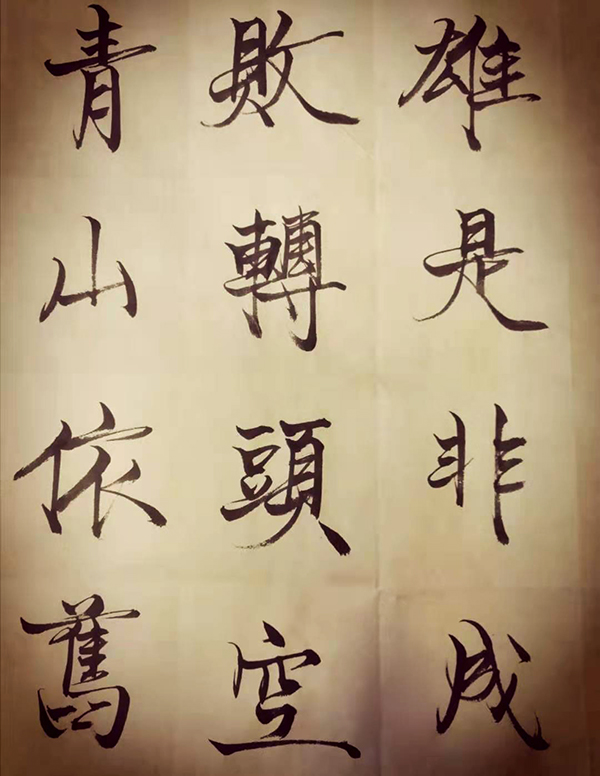 雄是非成
敗轉頭空
青山依舊